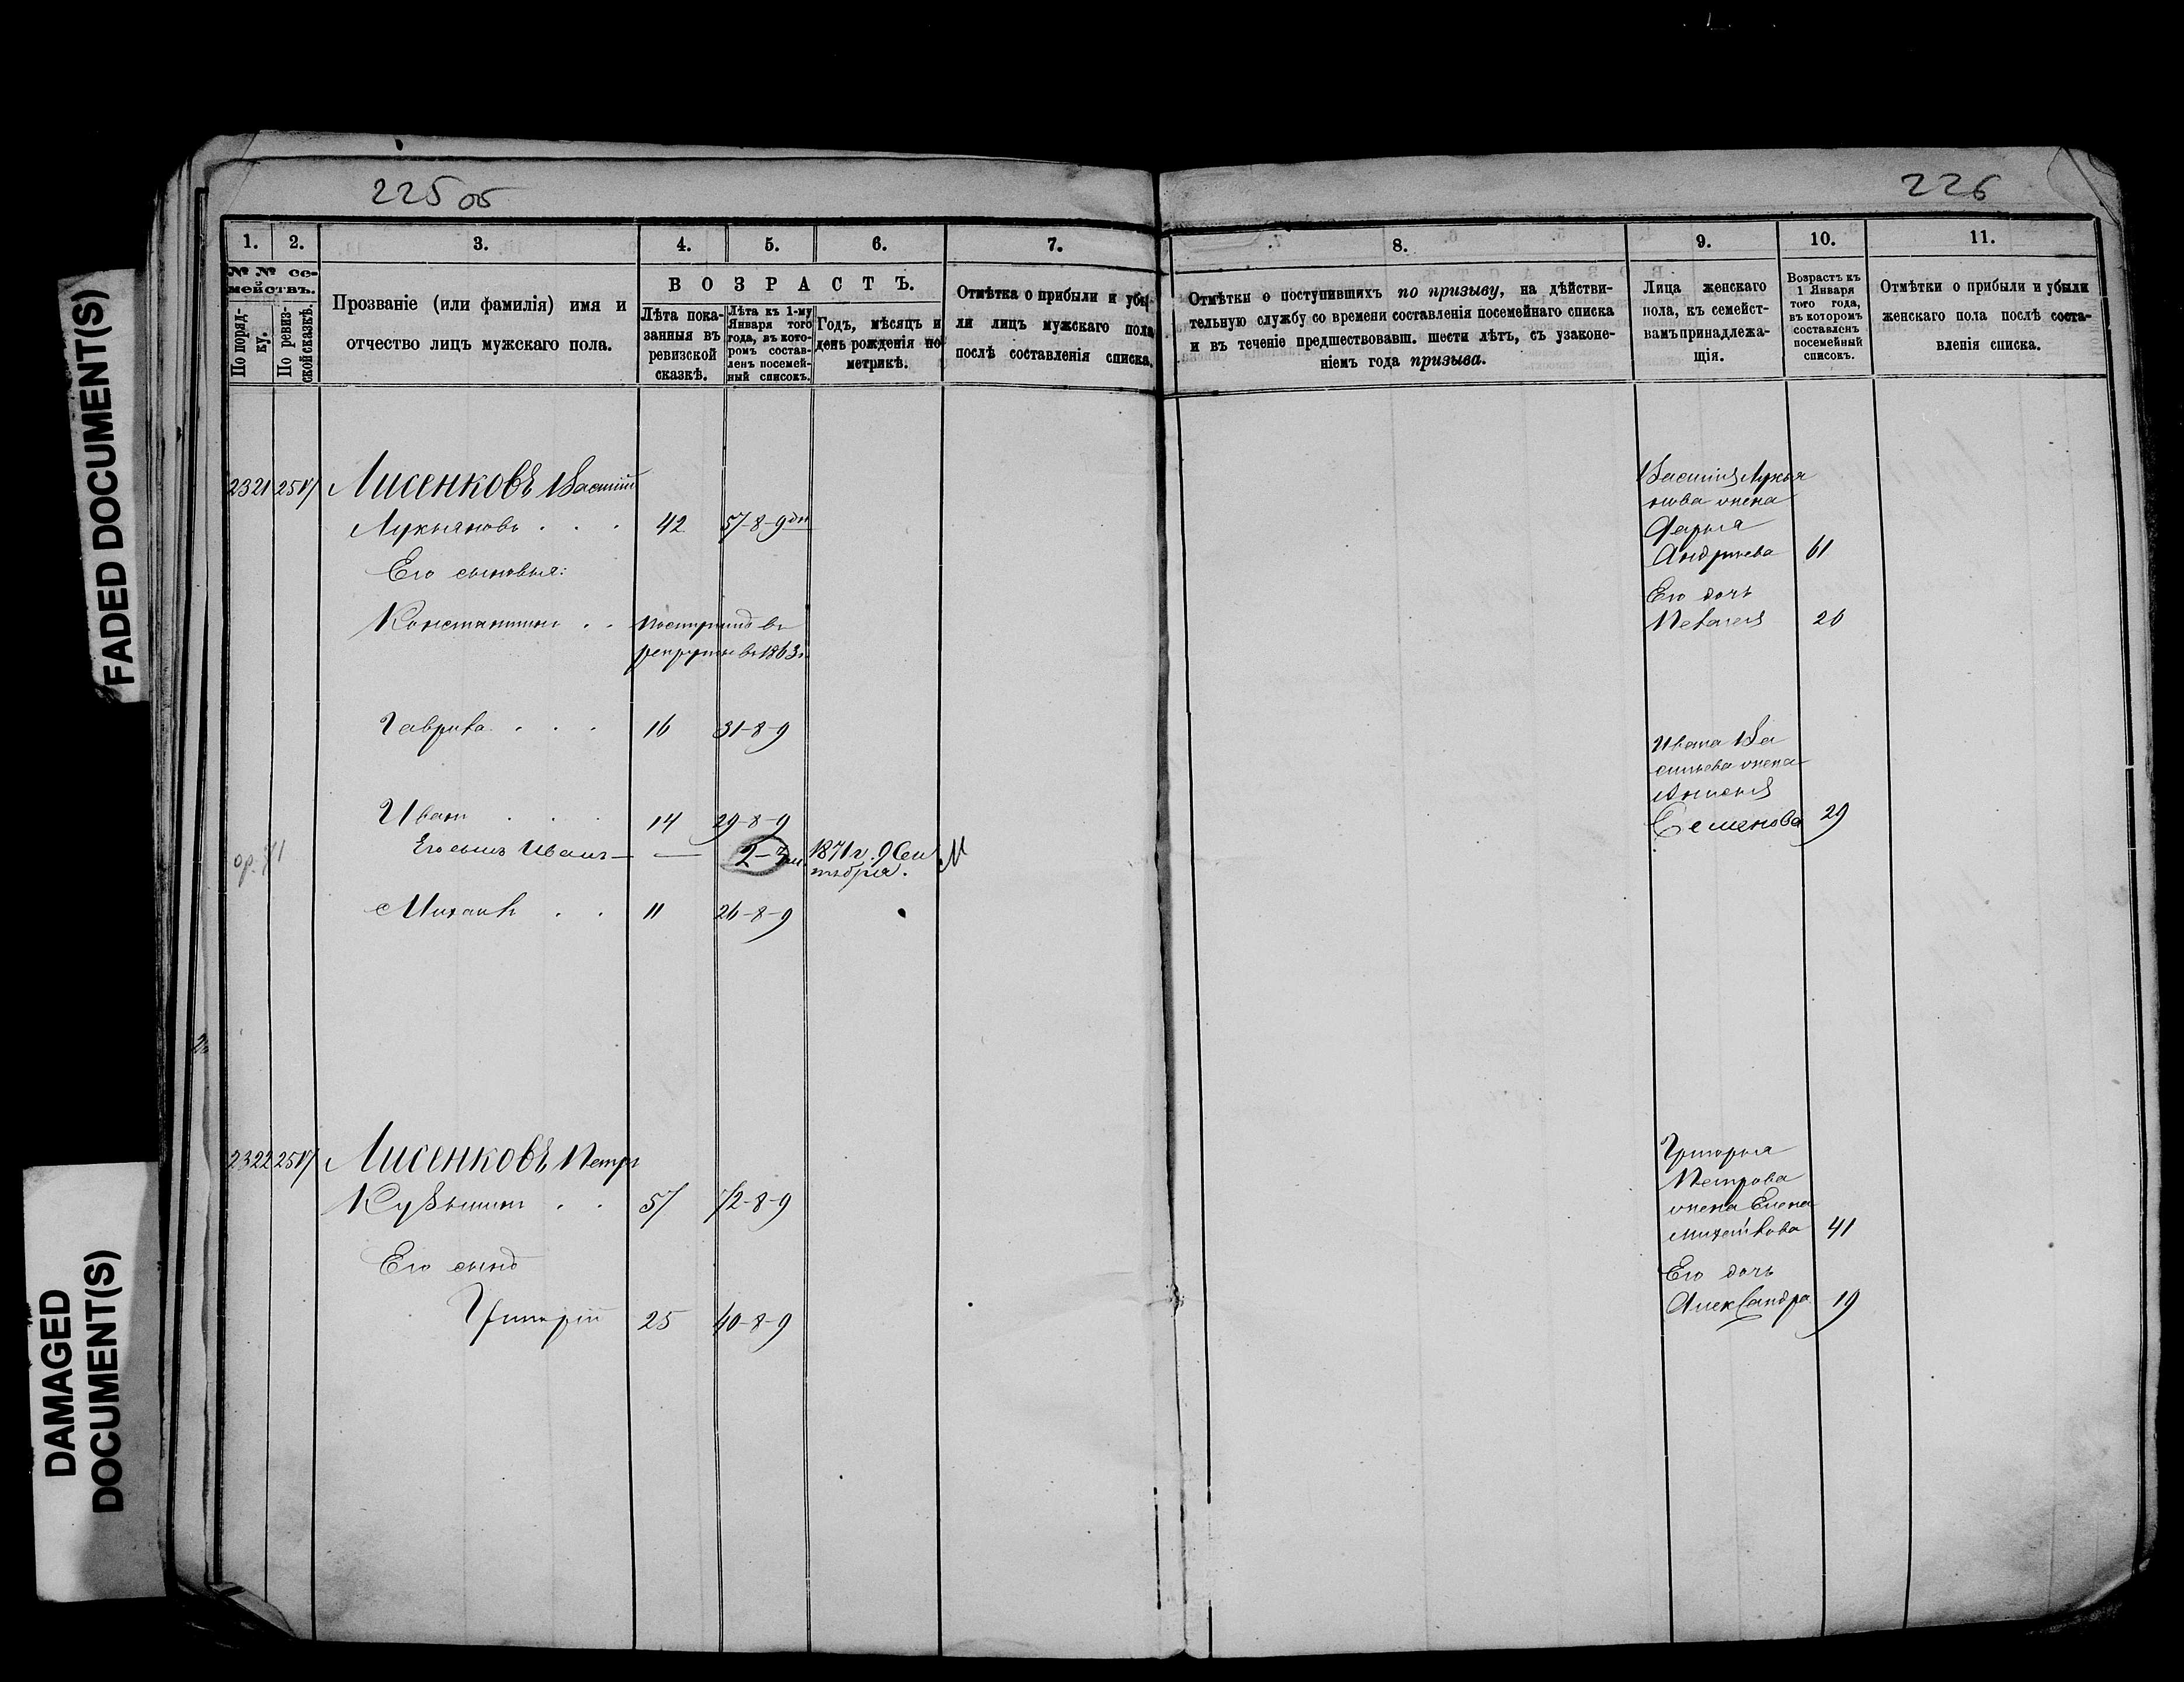 FADED DOCUMENT(S)
DAMAGED
DOCUMENT(S)
225 об
1. 2. 3. 4. 5. 6. 7.
№ № се-
мействъ.
По поряд-
ку.
По ревиз-
ской сказкѣ.
Прозваніе (или фамилія) имя и
отчество лицъ мужскаго пола.
ВОЗРАСТЪ.
Лѣта пока-
занныя въ
ревизской
сказкѣ.
Лѣта къ 1-му
Января того
года, въ кото-
ромъ состав-
ленъ посемей-
ный списокъ.
Годъ, мѣсяцъ и
день рожденія по
метрикѣ.
Отмѣтка о прибыли и убы-
ли лицъ мужскаго пола
послѣ составленія списка.
2321 Лисенковъ Василий
Лукьяновъ . . . 42 57-8-9 дн
Его сыновья:
Константинъ . . поступилъ въ
рекруты въ 1863 г.
Гаврила . . . 16 31-8-9
Иванъ . . . 14 29-8-9
Его сынъ Иванъ — — 2-3 м. 1871 г. 9 Сен
тября. М
Михаилъ . . 11 26-8-9
2322 Лисенковъ Петръ
Кузьминъ . . 57 72-8-9
Его сынъ
Григорій 25 40-8-9
226
8. 9. 10. 11.
Отмѣтки о поступившихъ по призыву, на дѣйстви-
тельную службу со времени составленія посемейнаго списка
и въ теченіе предшествовавш. шести лѣтъ, съ узаконе-
ніемъ года призыва.
Лица женскаго
пола, къ семейст-
вамъ принадлежа-
щія.
Возрастъ къ
1 Января
того года,
въ которомъ
составленъ
посемейный
списокъ.
Отмѣтки о прибыли и убыли
женскаго пола послѣ соста-
вленія списка.
Василия Лукья
нова жена
Дарья
Андреева 61
Его дочь
Пелагея 26
Ивана Ва
сильева жена
Ксения
Семенова 29
Григорья
Петрова
жена Елена
Михайлова 41
Его дочь
Александра 19